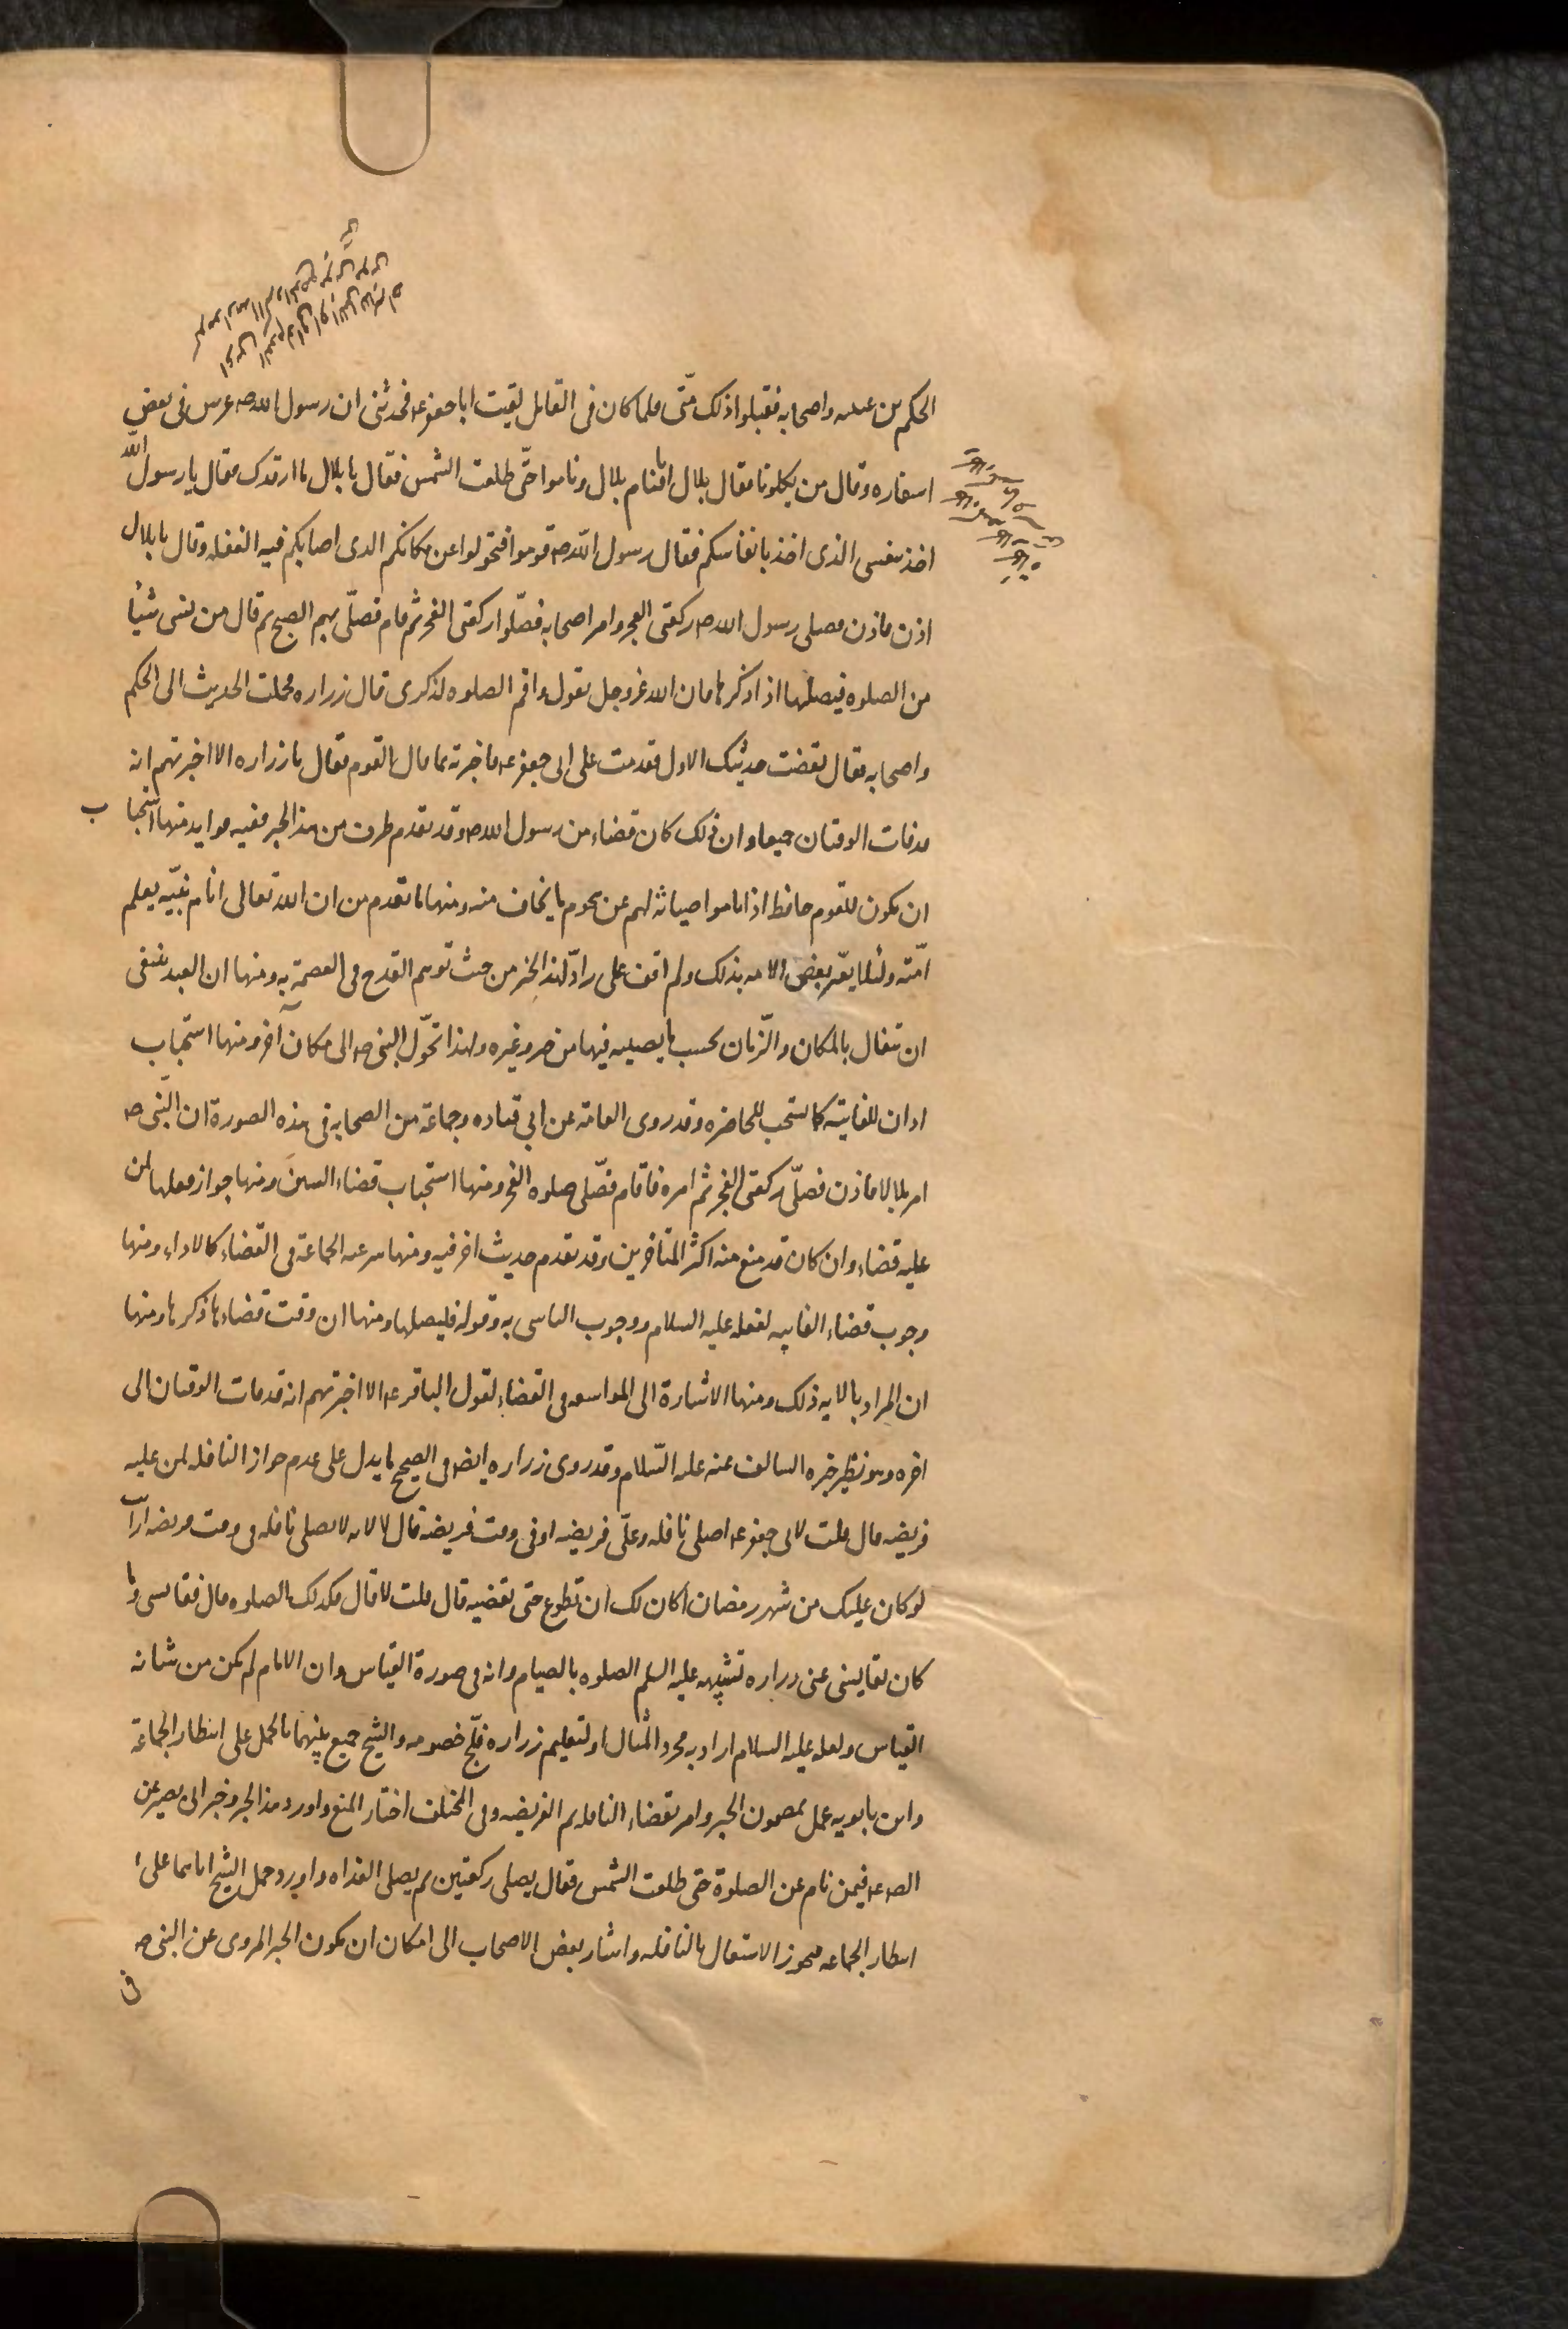 الحكم بن عتيبه واصحابه فقبلوا ذلك منّى فلما كان فى القابل لقيت ابا جعفر عه فحدثنى ان رسول الله صه عرس فى بعض
اسفاره وقال من يكلونا فقال بلال انا فنام بلال وناموا حتّى طلعت الشمس فقال يا بلال ما ارقدك فقال يا رسول الله
اخذ بنفسى الذى اخذ بانفاسكم فقال رسول الله صه قوموا فتحولوا عن مكانكم الذى اصابكم فيه الغفله وقال يا بلال
اذن فاذن فصلى رسول الله صه ركعتى الفجر وامر اصحابه فصّلوا ركعتى الفجر ثم قام فصلّى بهم الصبح ثم قال من نسى شيئا
من الصلوه فيصلها اذا ذكرها فان الله عز وجل يقول واقم الصلوه لذكرى قال زراره فحملت الحديث الى الحكم
واصحابه فقال نقضت حديثك الاول فقدمت على ابى جعفر عه فاخبرته بما قال القوم فقال يا زراره الا اخبرتهم انه
قد فات الوقتان جميعا وان ذلك كان قضاء من رسول الله صه وقد تقدم طرف من هذا الخبر ففيه فوايد منها استحبا ب
ان يكون للقوم حافظ اذا ناموا صيانة لهم عن هجوم ما يخاف منه ومنها ما تقدم من ان الله تعالى انام نبيّه يعلم
امّته ولئلا يعّير بعض الامه بذلك ولم اقف على رادّ لهذا الخبر من حيث توهم القدح فى العصمة به ومنها ان العبد ينبغى
ان يتفال بالمكان والزّمان بحسب ما يصيبه فيهما من خير وغيره ولهذا تحوّل النبى صه الى مكان آخر ومنها استحباب
اذان للفايتة كما يستحب للحاضره وقد روى العامة عن ابى قتاده وجماعة من الصحابه فى هذه الصورة ان النّبى صه
امر بلالا فاذن فصلّى ركعتى الفجر ثم امره فاقام فصّلى صلوه الفجر ومنها استحباب قضاء السنن ومنها جواز فعلها لمن
عليه قضاء وان كان قد منع منه اكثر المتاخرين وقد تقدم حديث اخر فيه ومنها شرعيه الجماعة فى القضاء كالاداء ومنها
وجوب قضاء الفايته لفعله عليه السلام ووجوب التاسى به وقوله فليصلها ومنها ان وقت قضاءها ذكرها ومنها
ان المراد بالايه ذلك ومنها الاشارة الى المواسعه فى القضاء لقول الباقر عه الا اخبرتهم انه قد فات الوقتان الى
اخره وهو نظير خبره السالف عنه عليه السّلام وقد روى زراره ايضه فى الصحيح ما يدل على عدم جواز النافله لمن عليه
فريضه قال قلت لابى جعفر عه اصلى نافله وعلّى فريضه او فى وقت فريضه قال لا لانه لا يصلى نافله فى وقت فريضه ارايت
لو كان عليك من شهر رمضان اكان لك ان تطوع حتى تقضيه قال قلت لا قال فكذلك الصلوه قال فقايسنى وما
كان يقايسنى عنى زراره تشبيهه عليه السلم الصلوه بالصيام وانه فى صورة القياس وان الامام لم يكن من شانه
القياس ولعله عليه السلام اراد به مجرد المثال او لتعليم زراره فلّج خصومه والشيخ جمع بينهما بالحمل على انتظار الجماعة
وابن بابويه عمل بمضمون الخبر وامر بقضاء النافله ثم الفريضه وفى المختلف اختار المنع واورد هذا الخبر وخبر ابى بصير عن
الصه عه فيمن نام عن الصلوة حتى طلعت الشمس فقال يصلى ركعتين ثم يصلى الغداه واورد حمل الشيخ اياهما على
انتظار الجماعه فيجوز الاشتغال بالنافله واشار بعض الاصحاب الى امكان ان يكون الخبر المروى عن النبى صه